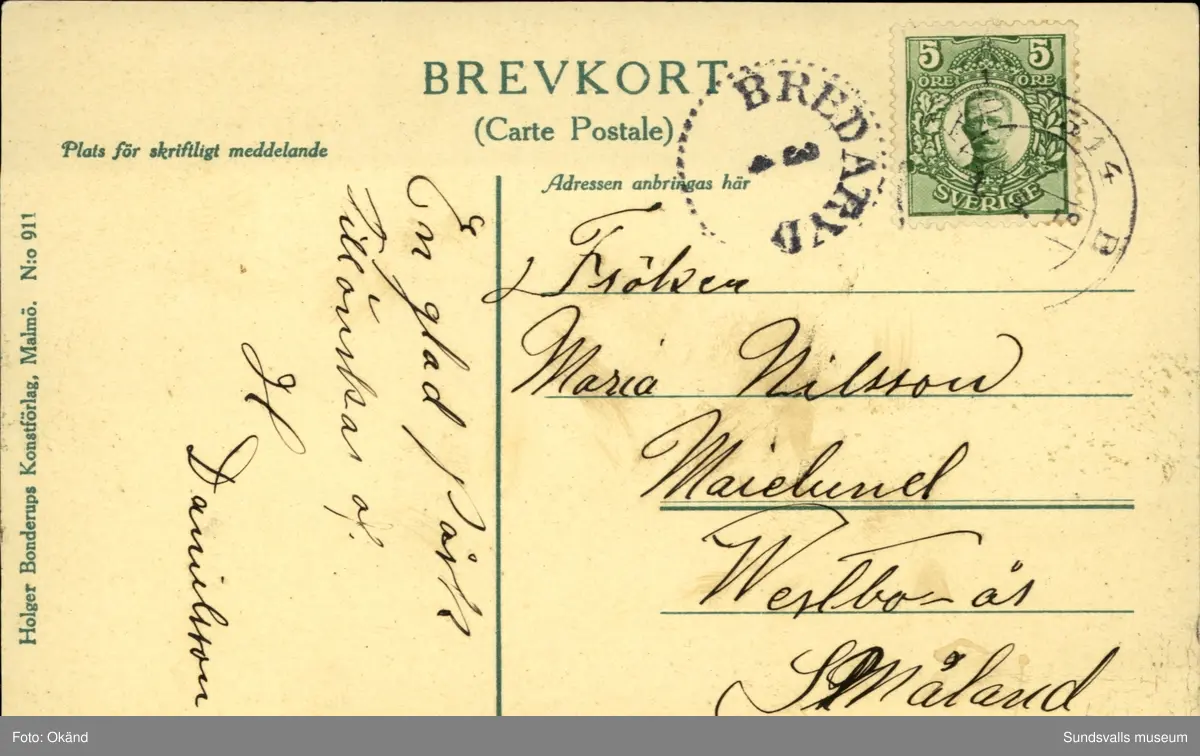 BREVKORT
(Carte Postale)
Plats för skriftligt meddelande
Adressen anbringas här
5 5
ÖRE ÖRE
SVERIGE
BREDARYD
4 3
B
Holger Bonderups Konstförlag, Malmö. N:o 911
En glad Påsk
Tillönskas af.
H
Danielsson
Fröken
Maria Nilsson
Marielund
Westbo-ås
Småland
Foto: Okänd
Sundsvalls museum